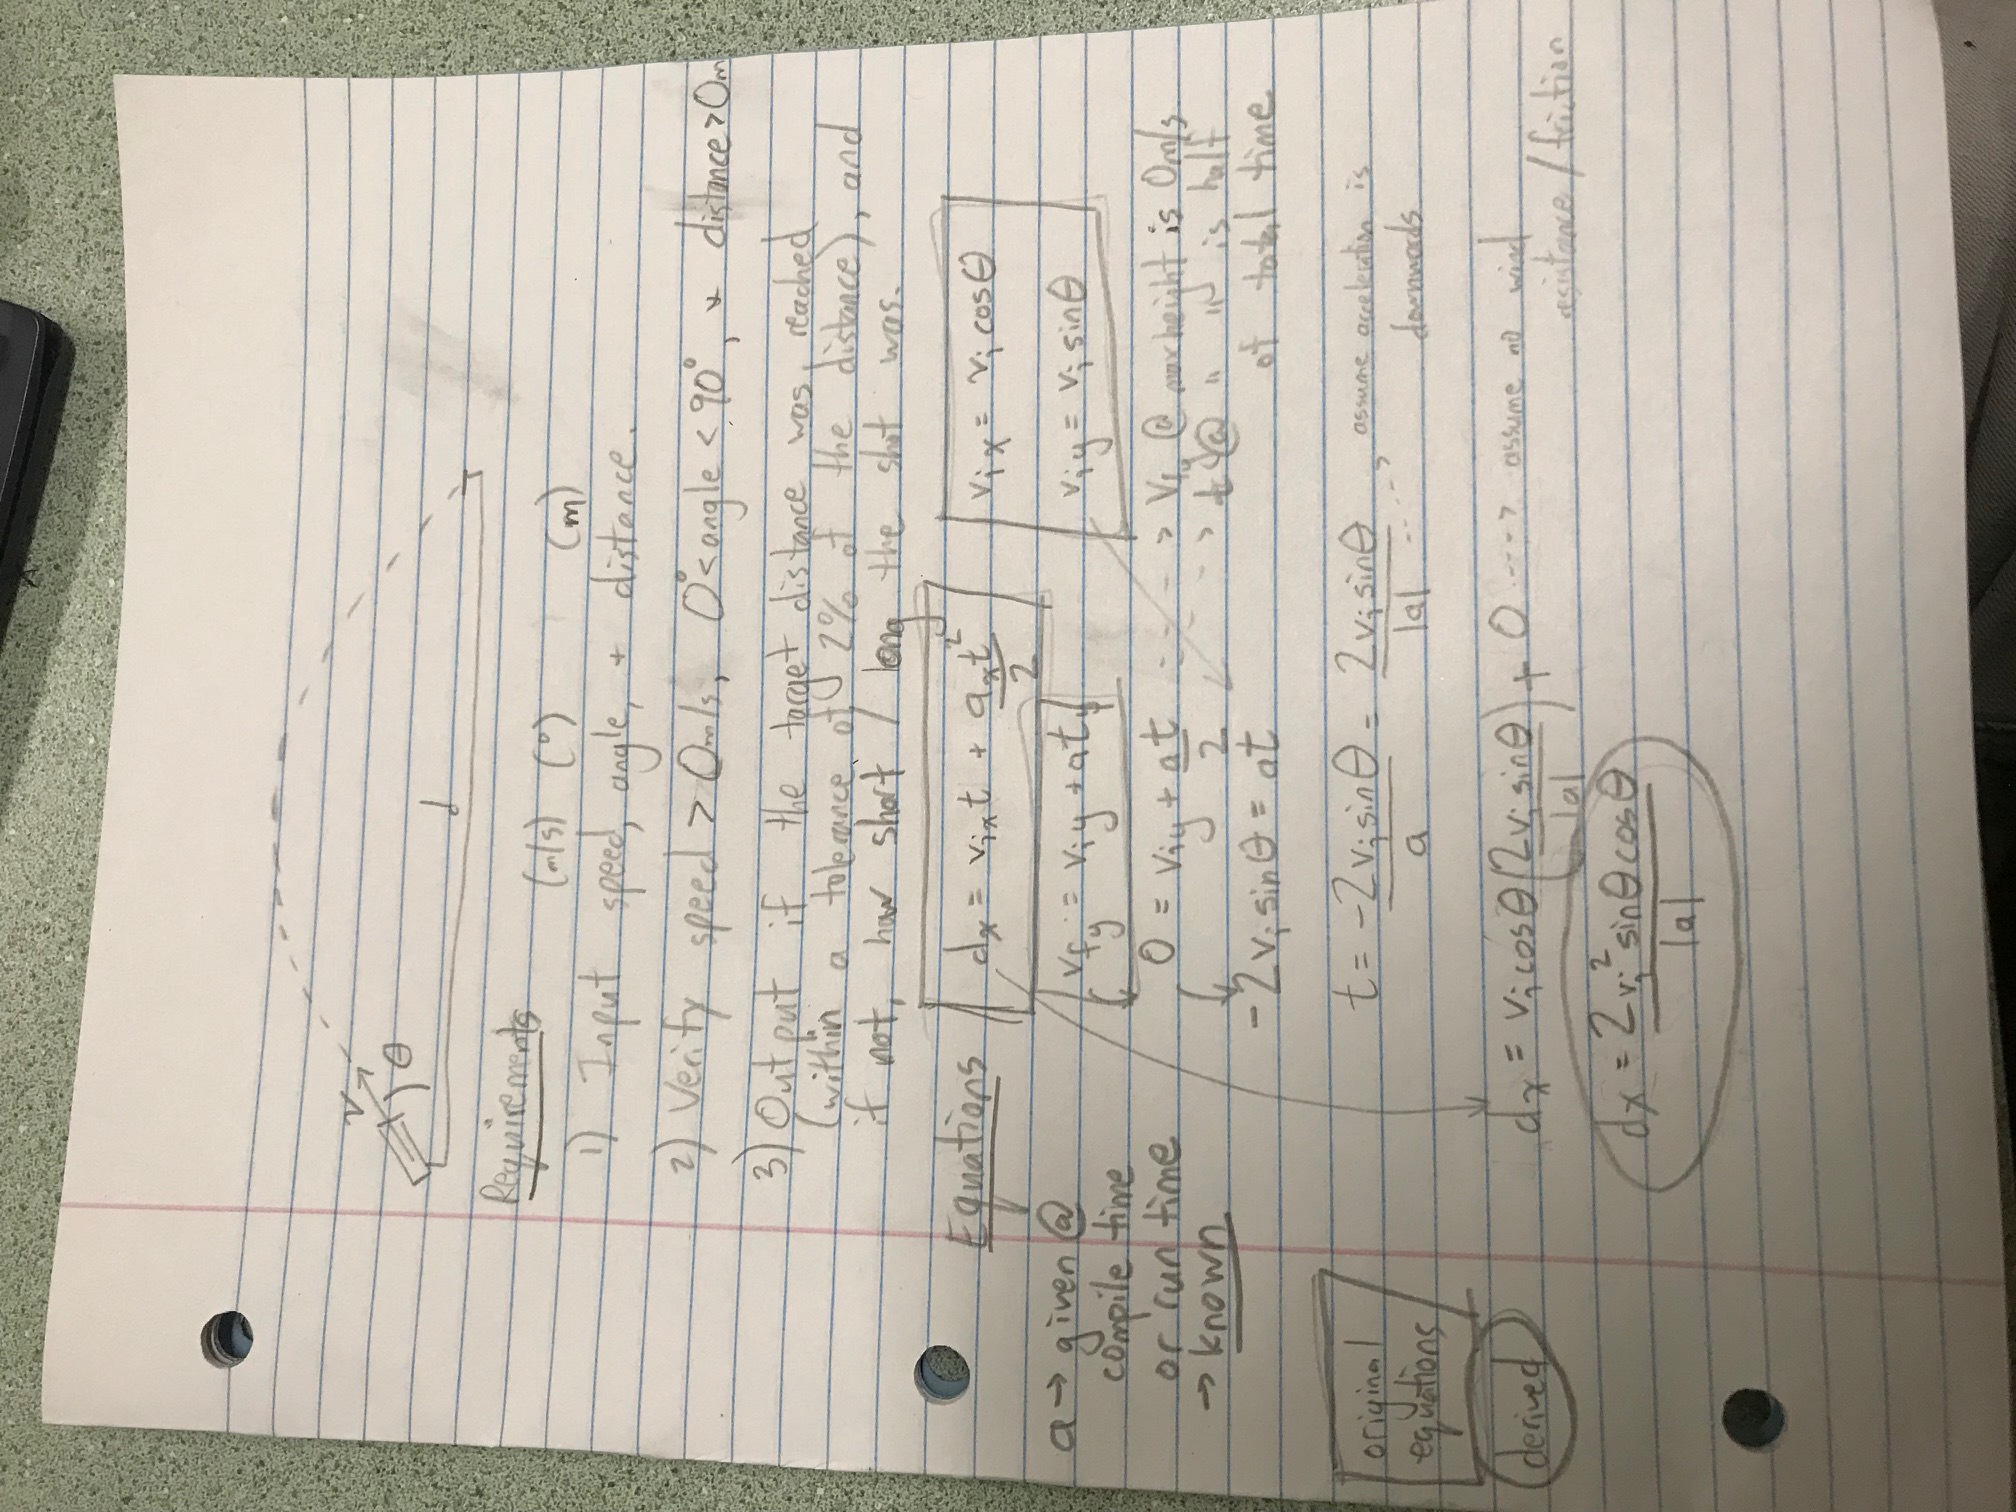 v
θ
d
Requirements
(m/s) (°) (m)
1) Input speed, angle, + distance.
2) Verify speed > 0m/s, 0°<angle < 90°, + distance>0m
3) Output if the target distance was reached
(within a tolerance of 2% of the distance), and
if not, how short / long the shot was.
Equations
dₓ = vᵢₓt + aₓt²/2
vᵢₓ = vᵢ cosθ
a → given @
compile time
or run time
→ known
v_fy = v_iy + at
v_iy = vᵢ sinθ
0 = v_iy + at/2 ----> v_fy @ max height is 0m/s
----> t @ " " is half
of total time
-2vᵢ sinθ = at
original
equations
t = -2vᵢsinθ/a = 2vᵢsinθ/|a| ----> assume acceleration is
downwards
derived
dₓ = vᵢcosθ(2vᵢ sinθ/|a|) + 0 ----> assume no wind
resistance/friction
dx = 2vᵢ²sinθcosθ/|a|